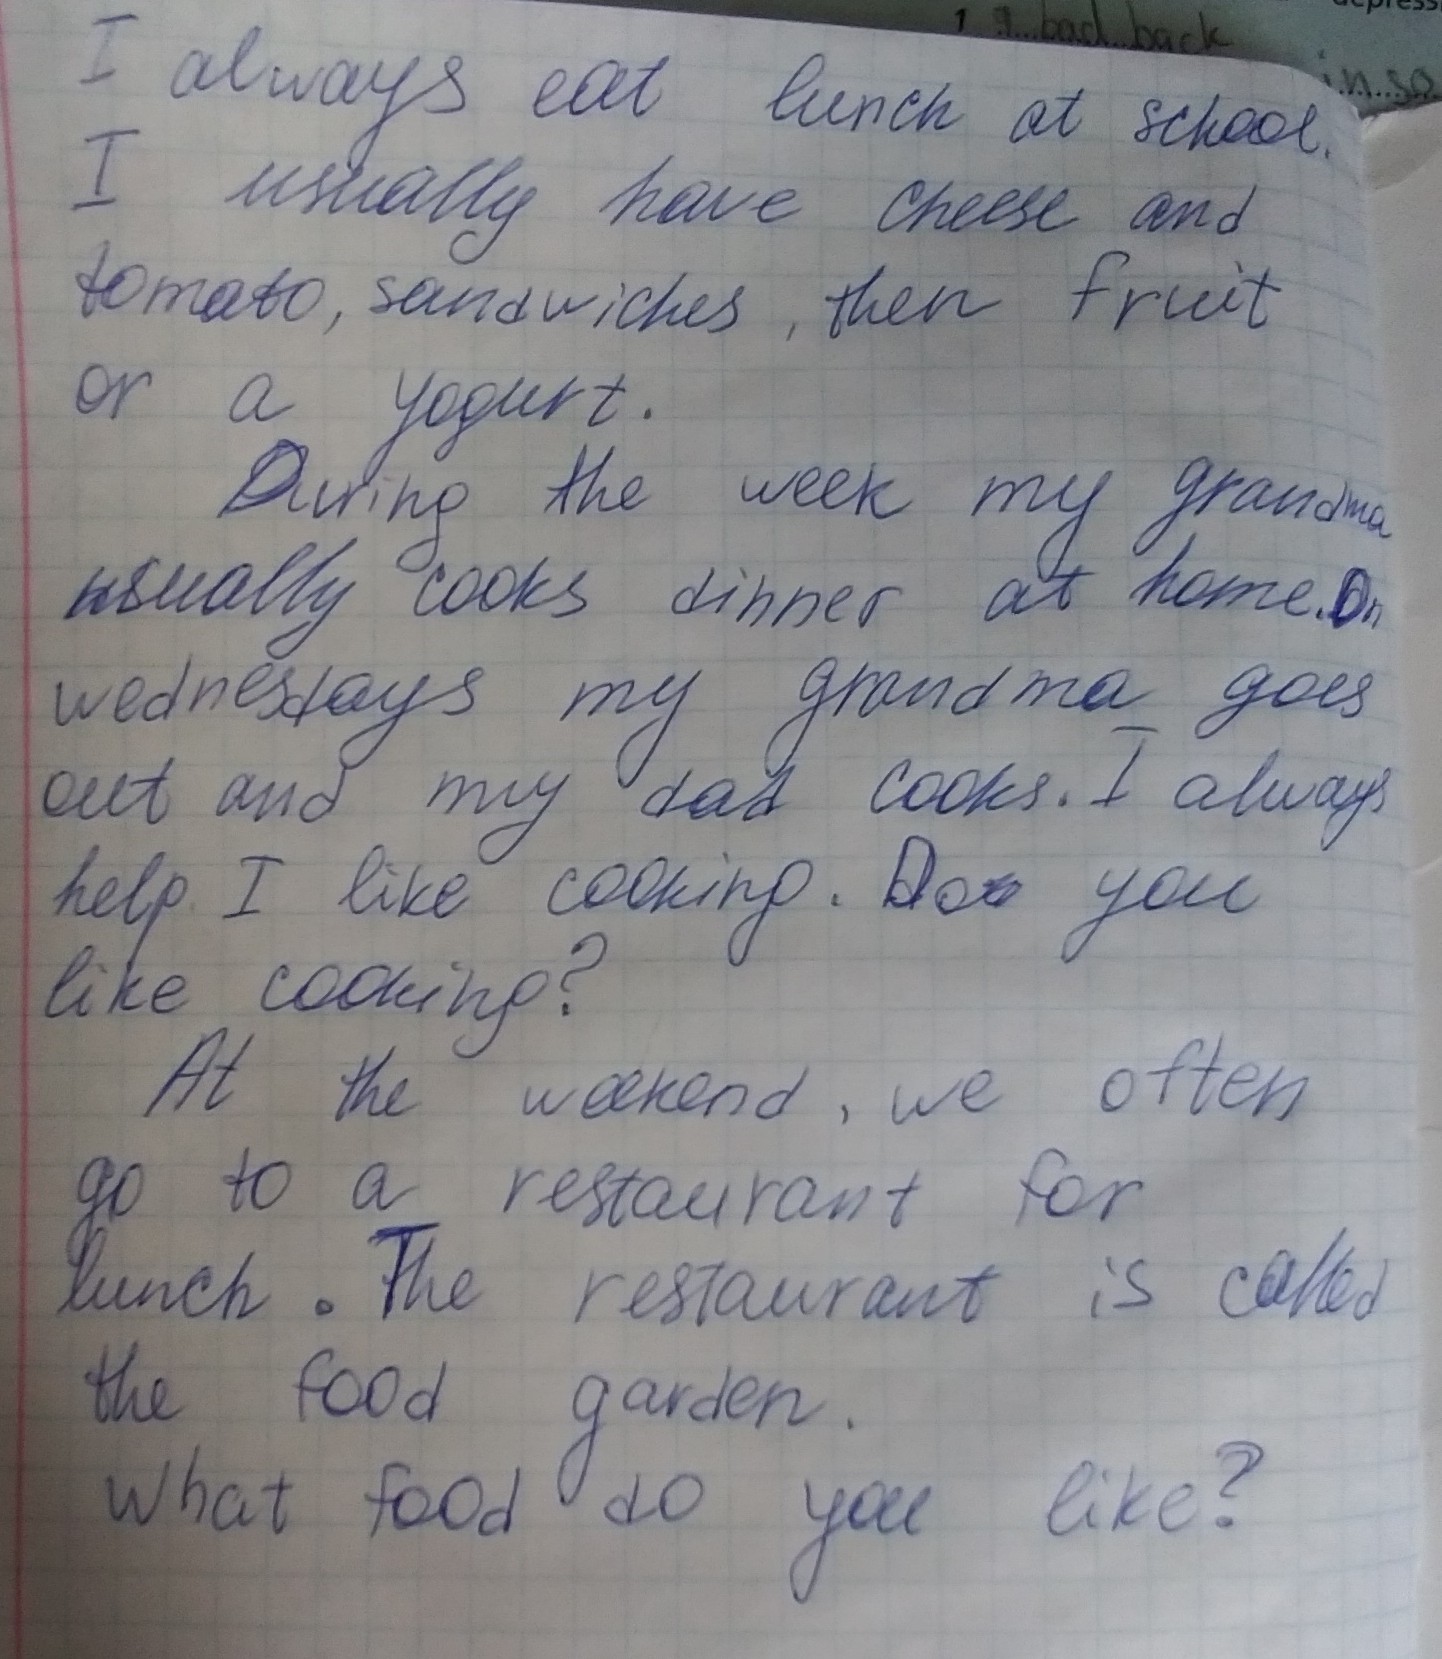 depress
1 a bad back
in so
I always eat lunch at school.
I usually have cheese and
tomato, sandwiches, then fruit
or a yogurt.
During the week my grandma
usually cooks dinner at home. On
wednesdays my grandma goes
out and my dad cooks. I always
help. I like cooking. Do you
like cooking?
At the weekend, we often
go to a restaurant for
lunch. The restaurant is called
the food garden.
What food do you like?